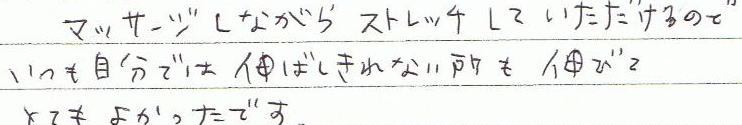 マッサージしながら ストレッチ していただけるので
いつも自分では 伸ばしきれない所も 伸びて
とてもよかったです。